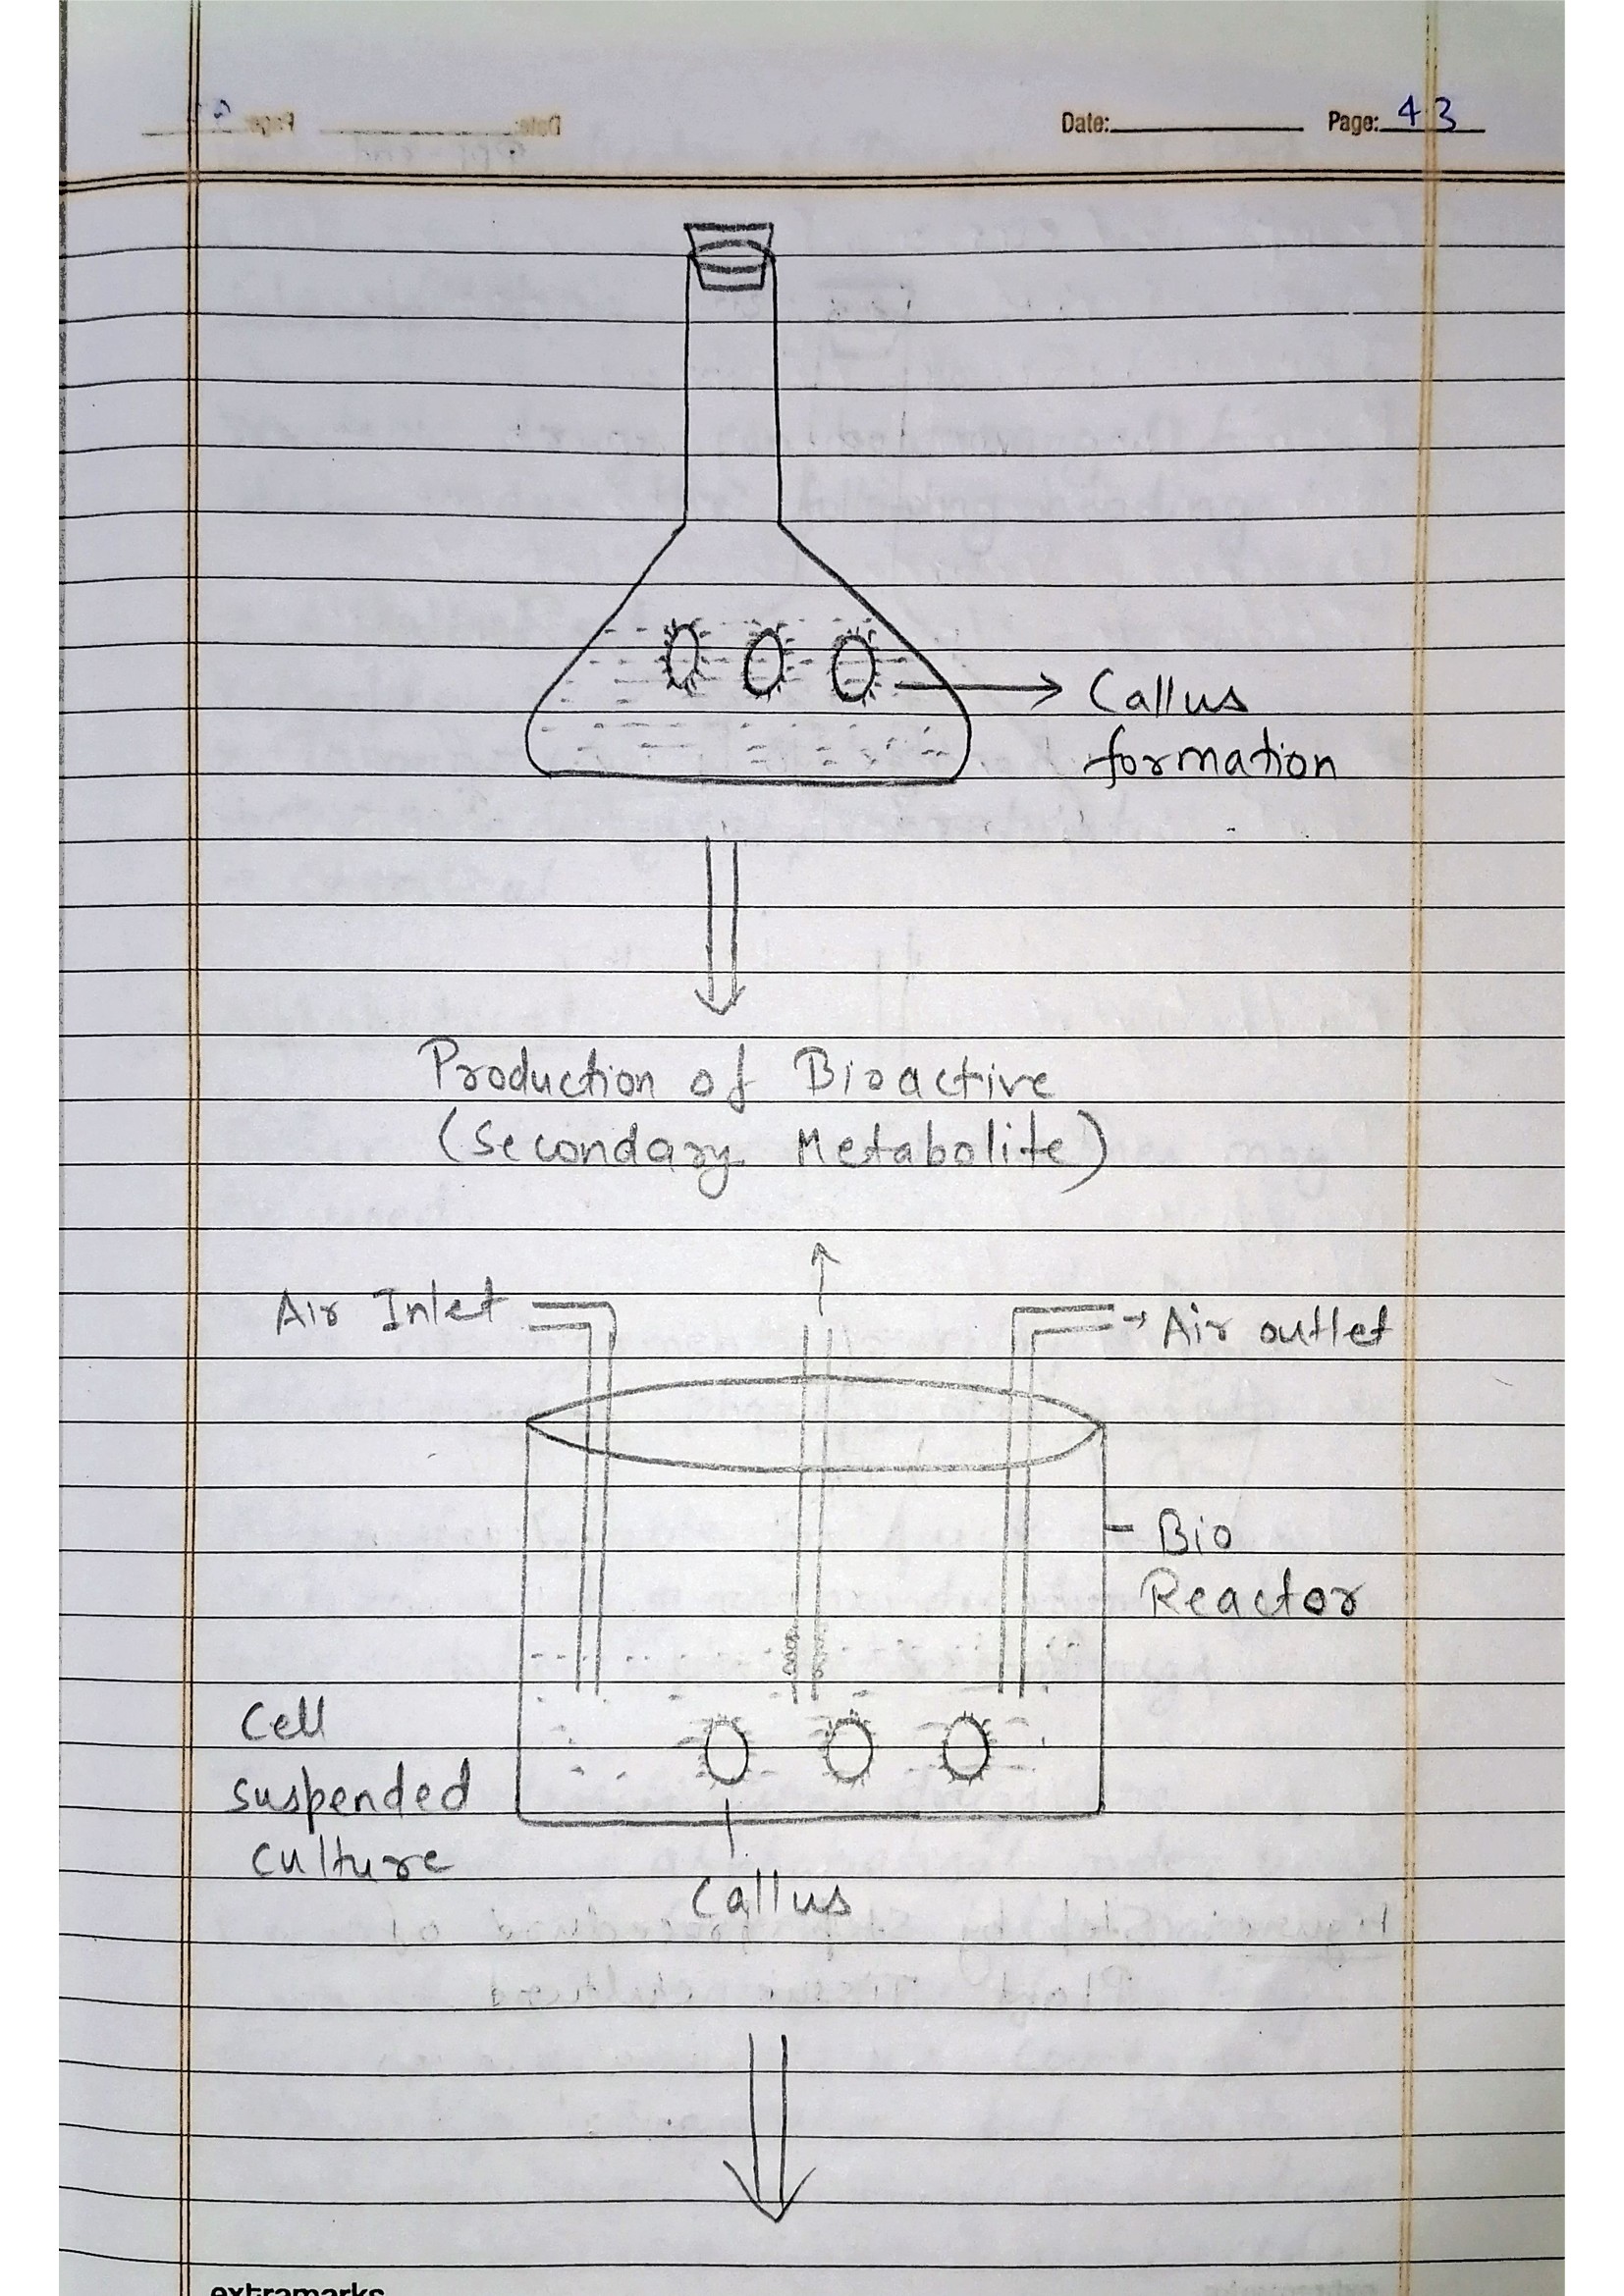 Date: Page: 43
Callus
formation
Production of Bioactive
(Secondary Metabolite)
Air Inlet
→ Air outlet
Bio
Reactor
Cell
suspended
culture
Callus
extramarks